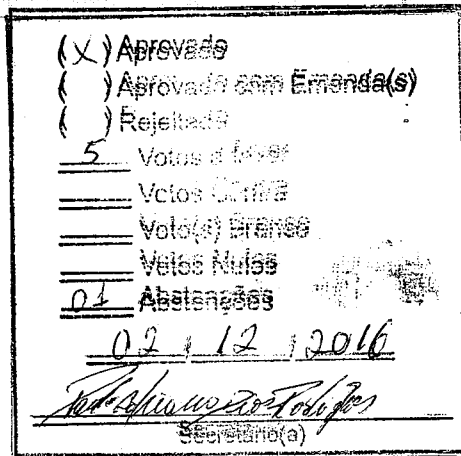 (X) Aprovado
( ) Aprovado com Emenda(s)
( ) Rejeitado
5 Votos a favor
Votos Contra
Voto(s) Branco
Votos Nulos
01 Abstenções
02 / 12 / 2016
Secretário(a)